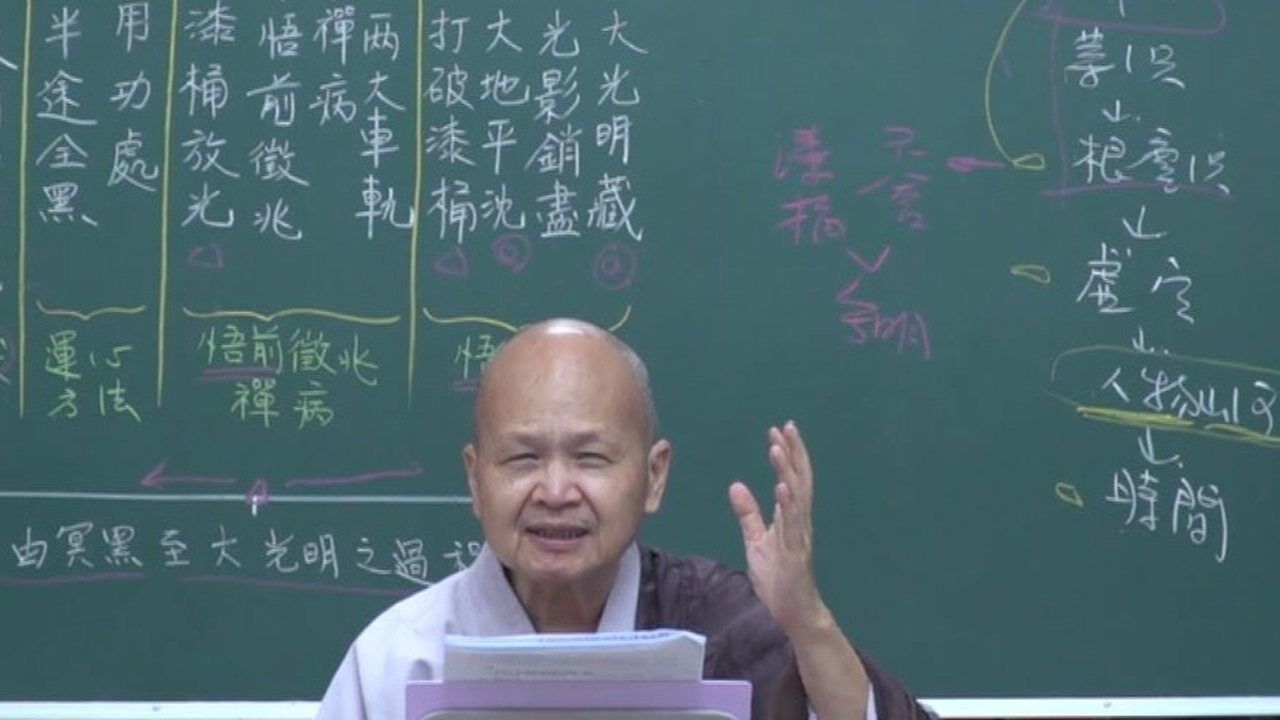 大光明藏
光影銷盡
大地平沈
打破漆桶
两大車軌
禪病
悟前徵兆
漆桶放光
用功處
半途全黑
悟
悟前徵兆
禪病
運心
方法
由冥黑至大光明之過
根塵识
虛空
人物山河
時間
漆桶